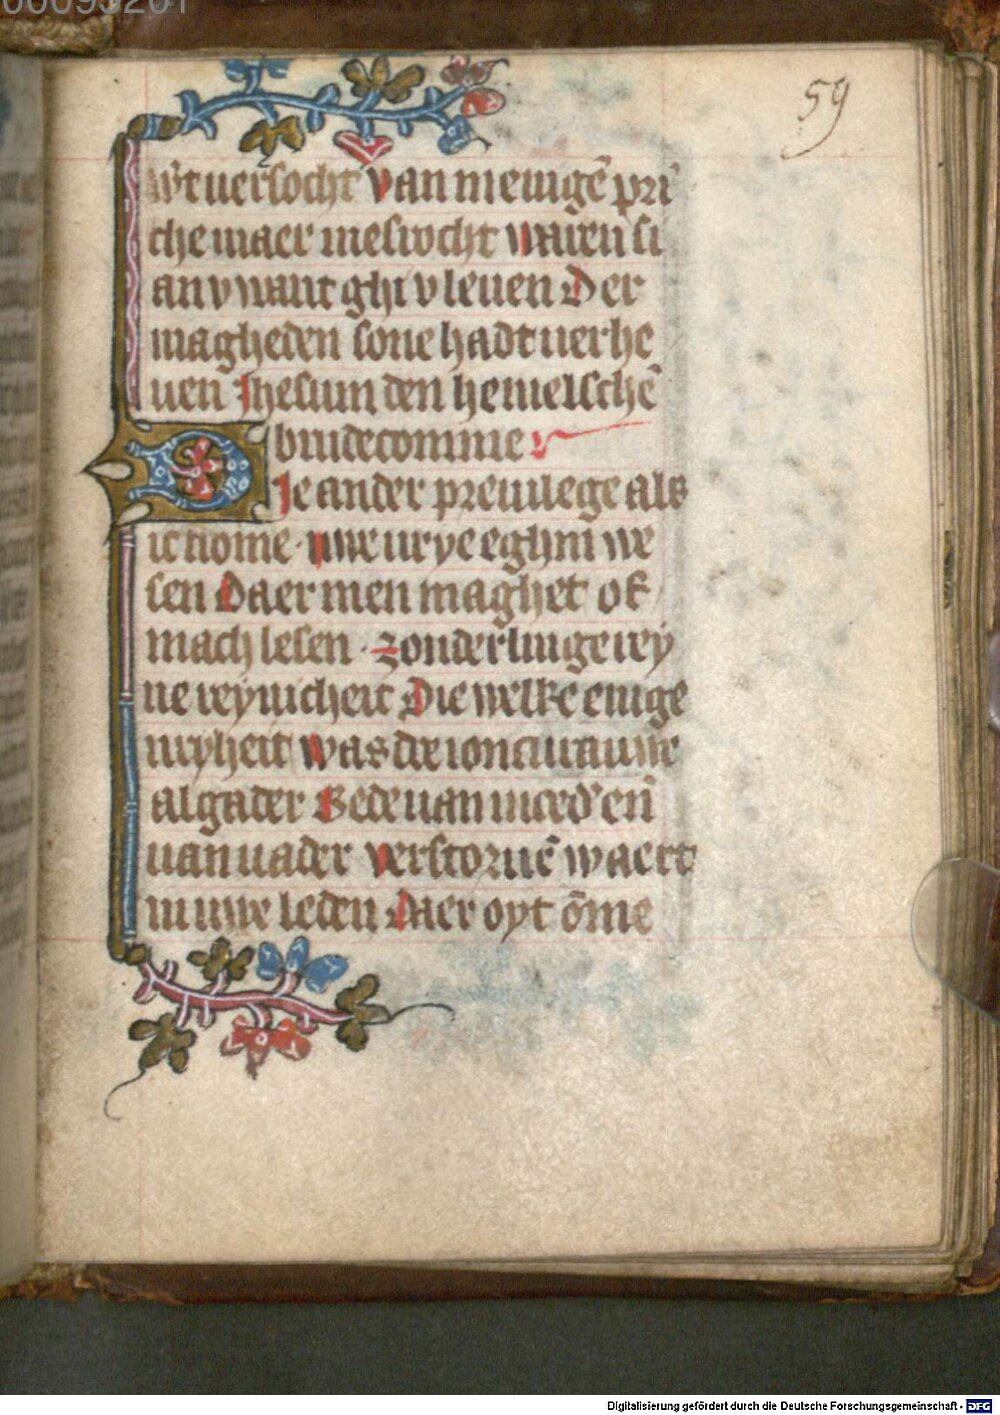 00095201
59
wt uersocht van menigē pri
che maer mesrocht waren si
an v want ghi v leuen Der
magheden sone hadt uerhe
uen Jhesum den hemelschē
brudecomme
Die ander preuilege als
ic nome · uwe urye eghin we
sen Daer men maghet of
mach lesen · zonderlinge rey
ne reynicheit Die welke enige
uryheit Was die ioncurauwe
algader Bede uan mœder en̄
uan uader verstoruē waert
in uwe leden Daer oyt ōme
Digitalisierung gefördert durch die Deutsche Forschungsgemeinschaft - DFG